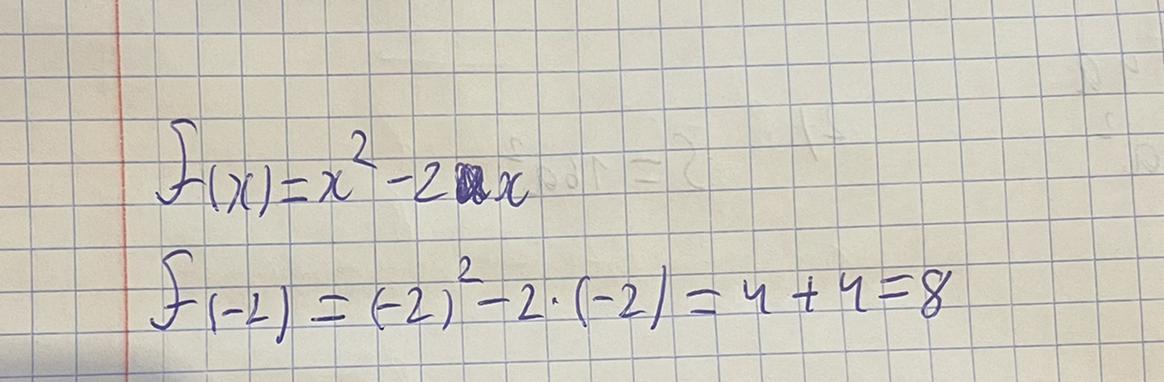 f(x)=x²-2x
f(-2)=(-2)²-2·(-2)=4+4=8